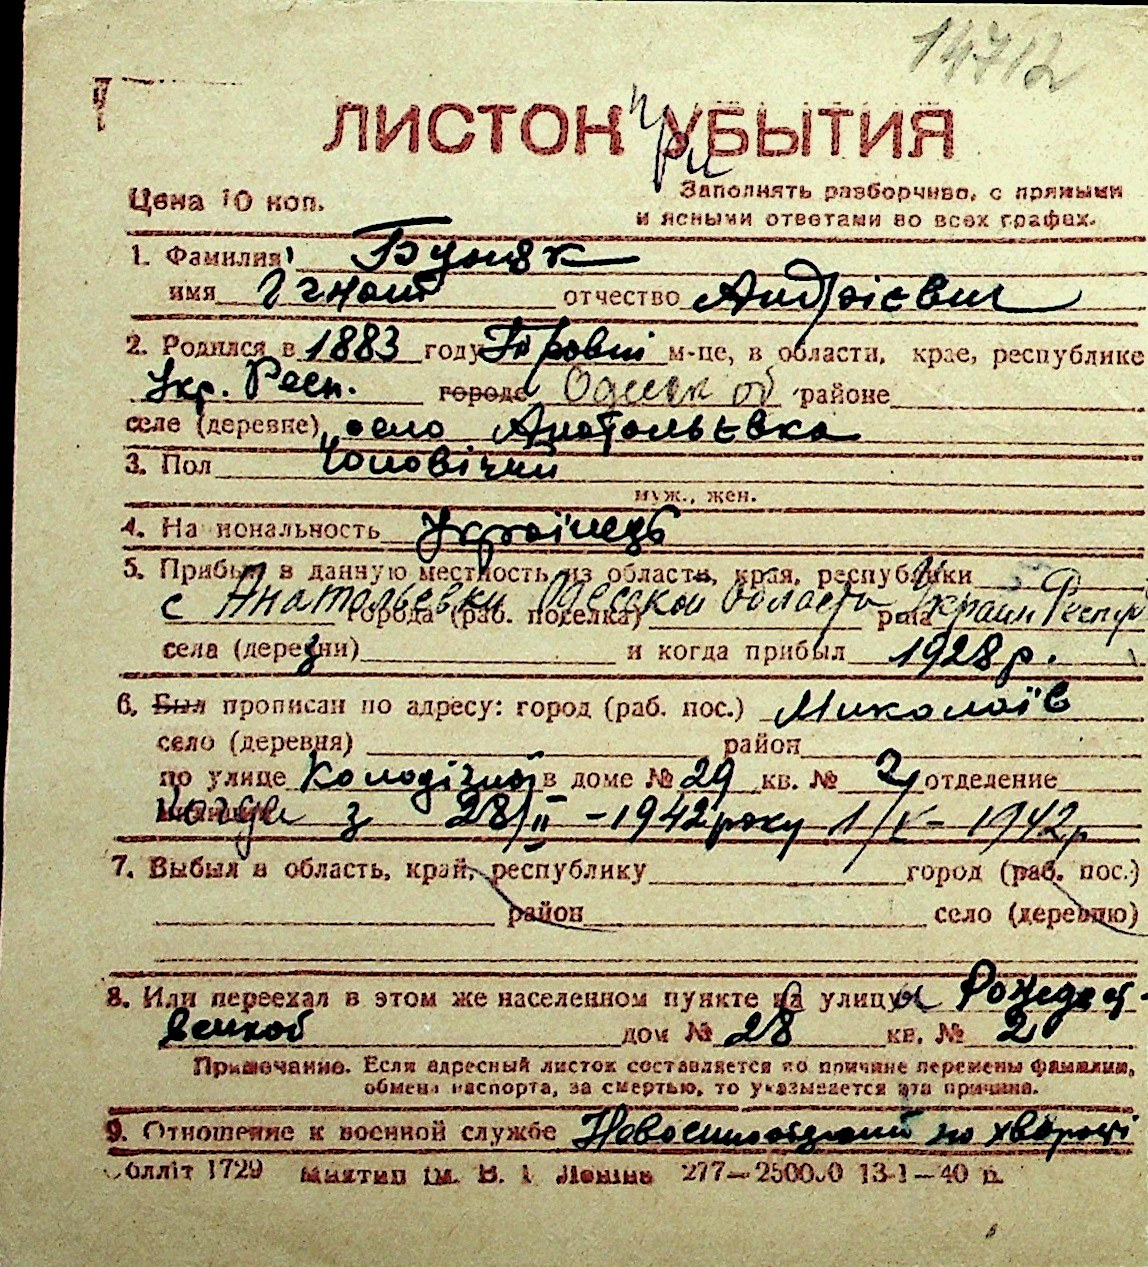 14712
ЛИСТОК УБЫТИЯ
при
Цена 10 коп.
Заполнять разборчиво, с прямыми
и ясными ответами во всех графах.
1. Фамилия Буняк
имя Ігнат отчество Андрієвич
2. Родился в 1883 году м-це, в области, крае, республике
Укр. Респ. городе Одеск об районе
селе (деревне) село Анатольєвка
3. Пол Чоловічий
муж., жен.
4. На иональность Українець
5. Прибыл в данную местность из области, края, республики
с Анатольевки Одесской Области Украин Респуб
города (раб. поселка) рна
села (деревни) и когда прибыл 1928 р.
6. Был прописан по адресу: город (раб. пос.) Миколаїв
село (деревня) район
по улице Колодізної в доме № 29 кв. № 2 отделение
когда з 28/II - 1942 року 1/V - 1942 р
7. Выбыл в область, край, республику город (раб. пос.)
район село (деревню)
8. Или переехал в этом же населенном пункте на улицу Рождест-
венкоб дом № 28 кв. № 2
Примечание. Если адресный листок составляется по причине перемены фамилии,
обмена паспорта, за смертью, то указывается эта причина.
9. Отношение к военной службе по хворості
Облліт 1729 Миктип ім. В. І. Леніна 277—25000 13-1—40 р.